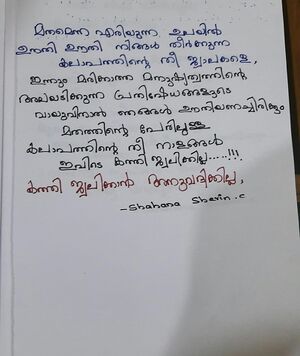 മതമെന്ന എരിയുന്ന ചൂളയിൽ
ഊതി ഊതി നിങ്ങൾ തീർക്കുന്ന
കലാപത്തിന്റെ തീ ജ്വാലകളെ,
ഇന്നും മരിക്കാത്ത മനുഷ്യത്വത്തിന്റെ
അലയടിക്കുന്ന പ്രതിഷേധങ്ങളുടെ
വായുവിനാൽ ഞങ്ങൾ ഊതിയണച്ചിരിക്കും
മതത്തിന്റെ പേരിലുള്ള
കലാപത്തിന്റെ തീ നാളങ്ങൾ
ഇവിടെ കത്തി ജ്വലിക്കില്ല.....!!!.
കത്തി ജ്വലിക്കാൻ അനുവദിക്കില്ല,
- Shahana Sherin. C